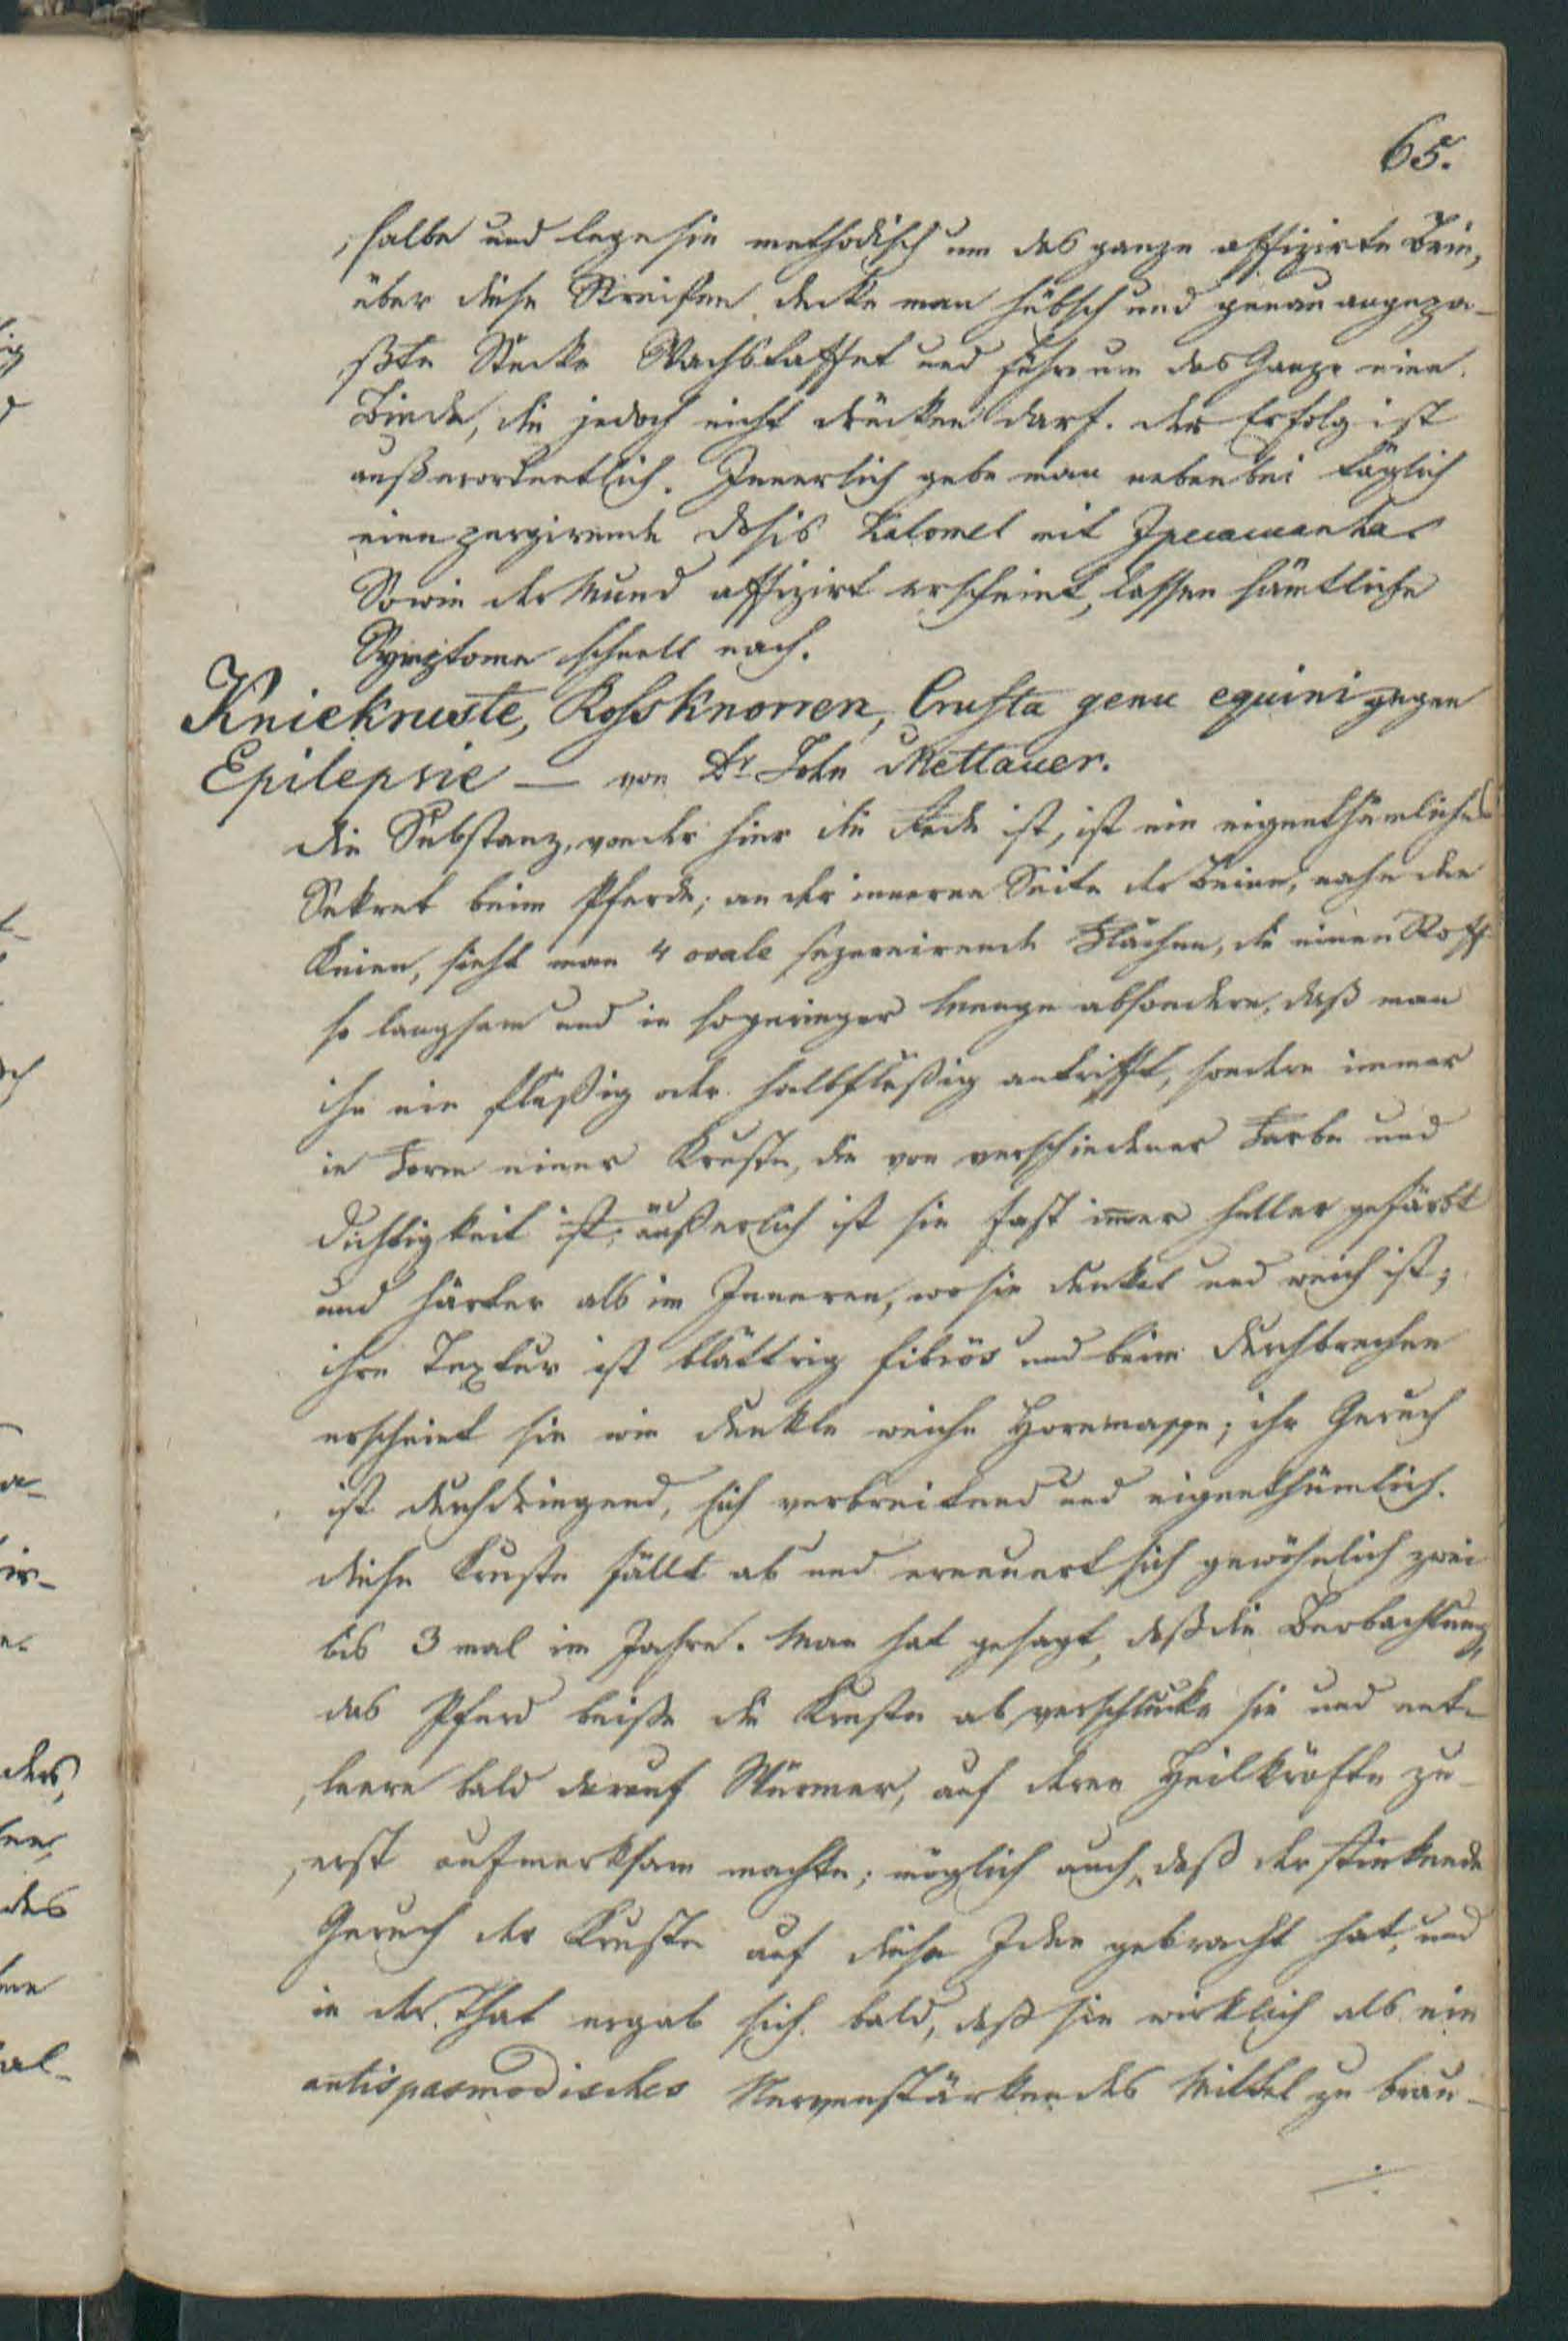 65.
salbe und lege sie methodisch um das ganze affizirte Bein,
über diese Streifen decke man hübsch und genau angepa-
ßte Stücke Wachstaffet und führe um das Ganze eine
Binde, die jedoch nicht drücken darf. der Erfolg ist
außerordentlich. Innerlich gebe man nebenbei täglich
eine purgirende dosis Kalomel mit Ipecacuanha.
Sowie der Mund affizirt erscheint, lassen sämtliche
Symptome schnell nach.
Kniekruste, Rossknorren, Crusta genu equini gegen
Epilepsie — von Dr John Mettauer.
die Substanz, von der hier die Rede ist, ist ein eigenthümliches
Sekret beim Pferde; an der inneren Seite der Beine, nahe den
Knien, sieht man 4 ovale sezernirende Flächen, die einen Stoff
so langsam und in so geringer Menge absondern, daß man
ihn nie flüßig oder halbflüßig antrifft, sondern immer
in Form einer Kruste, die von verschiedener Farbe und
Dichtigkeit ist; äußerlich ist sie fast im̅er heller gefärbt
und härter als im Inneren, wo sie dunkel und weich ist;
ihre Textur ist blättrig fibrös und beim Durchbrechen
erscheint sie wie dunkle weiche Hornmasse; ihr Geruch
ist durchdringend, sich verbreitend und eigenthümlich.
diese Kruste fällt ab und erneuert sich gewöhnlich zwei
bis 3 mal im Jahre. Man hat gesagt, daß die Beobachtung,
das Pferd beiße die Kruste ab, verschlucke sie und ent-
leere bald darauf Würmer, auf deren Heilkräfte zu-
erst aufmerksam machte; möglich auch, daß der stinkende
Geruch der Kruste auf diese Idee gebracht hat, und
in der That ergab sich bald, daß sie wirklich als ein
antispasmodisches Nervenstärkendes Mittel zu brau-